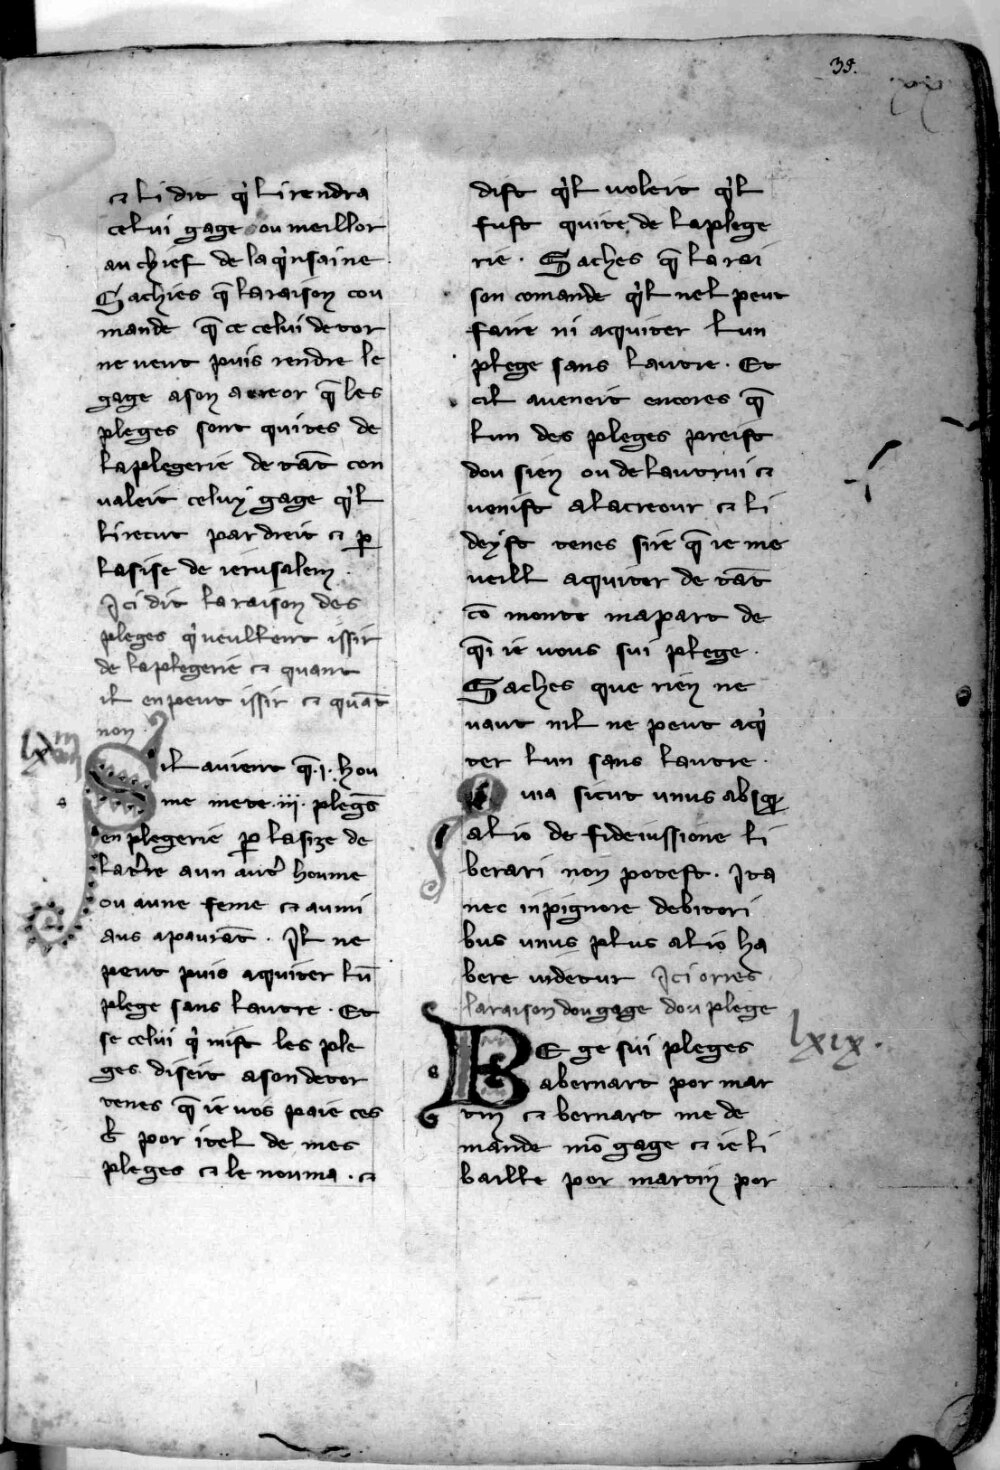 39.
⁊ li dit q̓ li rendra
celui gage ou meillor
au chief de la q̓nsaine
Sachies q̄ la raison cou
mande q̄ ce celui detor
ne veut puis rendre le
gage a son acreor q̄ les
pleges sont quites de
la plegerie de tāt con
valeit celuy gage q̓l
li recut par dreit ⁊ ꝑ
lasise de ierusalem.
Ici dit la raison des
pleges q̓ veullent issir
de la plegerie ⁊ quant
il en peut issir ⁊ quāt
non.
Sil avient q̄ .i. hou
me mete .iii. plegēs
en plegerie ꝑ lasize de
la tere a un autr̓ houme
ou a une feme ⁊ aumi
aus apaurāt. Il ne
peut puis aquiter lū
plege sans lautre. Et
se celui q̓ mist les ple
ges diseit a son detor
tenes q̄ ie vos paie ces
por itel de mes
pleges ⁊ le nouma. ⁊
dist q̓l voleit q̓l
fust quite de la plege
rie. Saches q̄ la rai
son comande q̓l nel peut
faire ni aquiter lun
plege sans lautre. Et
cil aveneit encores q̄
lun des pleges preist
dou sien ou de lautrui ⁊
venist a lacreour ⁊ li
deyst tenes sire q̄ ie me
veill aquiter de tāt
cō monte ma part de
q̄i ie vous sui plege.
Saches que rien ne
vaut nil ne peut aq̓
ter lun sans lautre.
Quia sicut unus absq̄
alio de fideiussione li
berari non potest. Ita
nec in pignore debitori
bus unus plus alio ha
bere videtur Ici orres
la raison dou gage dou plege
lxix.
SE ge sui pleges
a bernart por mar
tin ⁊ bernart me de
mande mō gage ⁊ ie li
baille por martin por